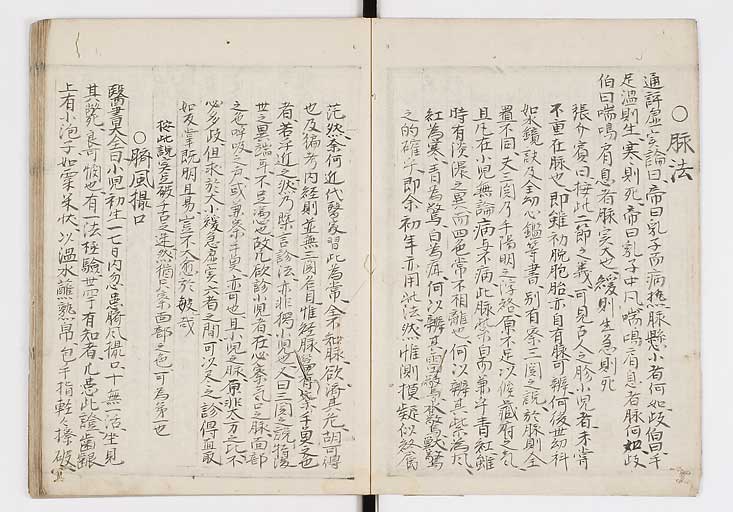 ○脈法
通評虛實論曰帝曰乳子而病熱脈懸小者何如岐伯曰手
足溫則生寒則死帝曰乳子中風喘鳴肩息者脈何如岐
伯曰喘鳴肩息者脈實大也緩則生急則死
張介賓曰按此二節之義可見古人之診小兒者未嘗
不重在脈也即雖初脫胞胎亦自有脈可辨何後世幼科
如水鏡訣及全幼心鑑等書別有察三関之說於脈則全
置不同夫三関乃手陽明之浮絡原不足以候藏府之氣
且凡在小兒無論病与不病此脈常自而兼乎青紅雖
時有淡濃之異而四色常不相離也何以辨其紫為風
紅為寒青為驚白為疳何以辨其雷驚人驚獸驚
之的確乎即余初年亦用此法然惟則模疑似終
茫然奈何近代醫家習此為常余和脈欲濟其危胡可得
也及徧考內經則並無三関名目惟經脈篇有察手魚之色
者若乎近之然乃槩言診法亦非獨小兒也又曰三関之說特後
世之異端耳不足憑也故凡欲診小兒者在必察氣口之脈面部
之色呼吸之声或兼察手魚亦可也且小兒之脈原非大方之比不
必多歧但求於大小緩急虛實六者之間可以尽之診得直取
如夂業既明且易豈不大愈於彼哉
按此說实破千古之迷然猶只察面部之色可為第一也
○臍風撮口
醫書大全曰小兒初生一七日內忽患臍風撮口十無一活坐見
其斃良可憫也有一法極驗世罕有知者凡患此證齒齦
上有小泡子如粟米状以溫水蘸熟帛包手指輕々擦破